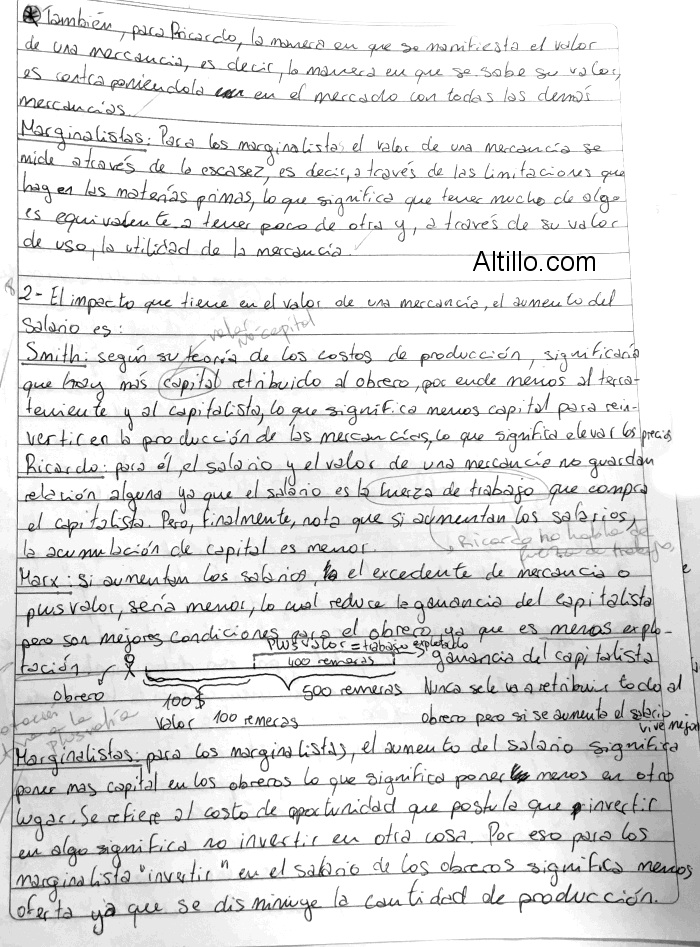 También, para Ricardo, la manera en que se manifiesta el valor
de una mercancia, es decir, la manera en que se sabe su valor,
es contraponiendola en el mercado con todas las demás
mercancías.
Marginalistas: Para los marginalistas el valor de una mercancia se
mide a través de la escasez, es decir, a través de las limitaciones que
hay en las materias primas, lo que significa que tener mucho de algo
es equivalente a tener poco de otra y, a través de su valor
de uso, la utilidad de la mercancía.
Altillo.com
2- El impacto que tiene en el valor de una mercancia, el aumento del
salario es:
valor
No capital
Smith: según su teoría de los costos de producción, significaría
que hay más capital retribuido al obrero, por ende menos al terra-
teniente y al capitalista, lo que significa menos capital para rein-
vertir en la producción de las mercancías, lo que significa elevar los precios
Ricardo: para él, el salario y el valor de una mercancia no guardan
relación alguna ya que el salario es la fuerza de trabajo que compra
el capitalista. Pero, finalmente, nota que si aumentan los salarios,
la acumulación de capital es menor.
Ricardo no habla de
fuerza de trabajo,
Marx: Si aumentan los salarios, el excedente de mercancia o
plusvalor, seria menor, lo cual reduce la ganancia del capitalista
pero son mejores condiciones para el obrero ya que es menos explo-
tación
Plus valor = trabajo explotado
400 remeras
ganancia del capitalista
Obrero
100$
500 remeras
Nunca se le va a retribuir todo al
valor 100 remeras
obrero pero si se aumenta el salario
vive mejor
Marginalistas: para los marginalistas, el aumento del salario significa
poner mas capital en los obreros lo que significa poner menos en otro
lugar. Se refiere al costo de oportunidad que postula que invertir
en algo significa no invertir en otra cosa. Por eso para los
marginalista "invertir" en el salario de los obreros significa menos
oferta ya que se disminuye la cantidad de producción.